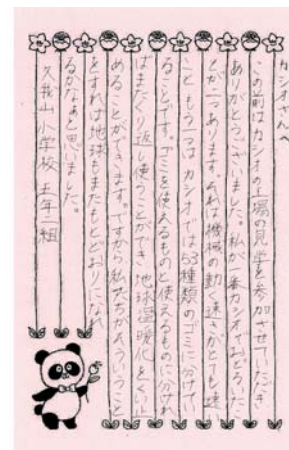 カシオさんへ
この前はカシオの工場の見学を参加させていただき
ありがとうございました。私が一番カシオでおどろいたこ
とが二つあります。それは機械の動く速さがとても速い
こと もう一つはカシオでは53種類のゴミに分けてい
ることです。ゴミを使えるものと使えるものに分けれ
ばまたくり返し使うことができ、地球温暖化をくい止
めることができます。ですから私たちがそういうこと
をすれば地球もまたもとどおりになれ
るかなぁと思いました。
久我山小学校 五年二組